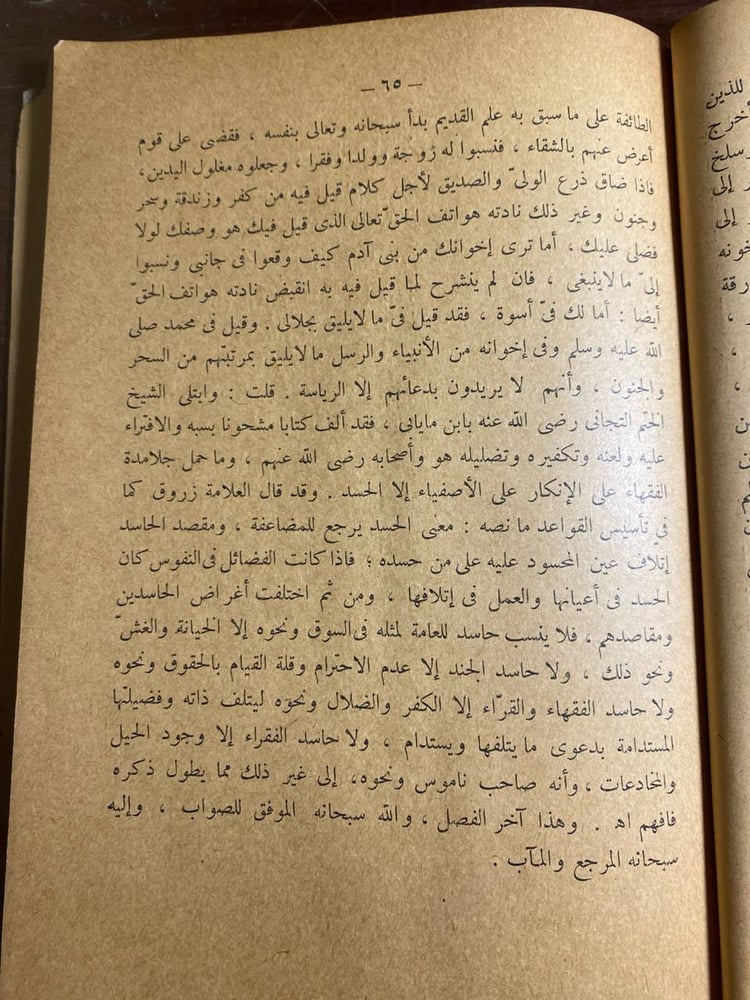 — ٦٥ —
الطائفة على ما سبق به علم القديم بدأ سبحانه وتعالى بنفسه ، فقضى على قوم
أعرض عنهم بالشقاء ، فنسبوا له زوجة وولدا وفقرا ، وجعلوه مغلول اليدين،
فاذا ضاق ذرع الولىّ والصديق لأجل كلام قيل فيه من كفر وزندقة وسحر
وجنون وغير ذلك نادته هواتف الحقّ تعالى الذى قيل فيك هو وصفك لولا
فضلى عليك ، أما ترى إخوانك من بنى آدم كيف وقعوا فى جانبى ونسبوا
إلىّ ما لاينبغى ، فان لم ينشرح لما قيل فيه به انقبض نادته هواتف الحقّ
أيضا : أما لك فىّ أسوة ، فقد قيل فىّ ما لايليق بجلالى . وقيل فى محمد صلى
الله عليه وسلم وفى إخوانه من الأنبياء والرسل ما لايليق بمرتبتهم من السحر
والجنون ، وأنهم لا يريدون بدعائهم إلا الرياسة . قلت : وابتلى الشيخ
الختم التجانى رضى الله عنه بابن مايابى ، فقد ألف كتابا مشحونا بسبه والافتراء
عليه ولعنه وتكفيره وتضليله هو وأصحابه رضى الله عنهم ، وما حمل جلامدة
الفقهاء على الإنكار على الأصفياء إلا الحسد . وقد قال العلامة زروق كما
فى تأسيس القواعد ما نصه : معنى الحسد يرجع للمضاعفة ، ومقصد الحاسد
إتلاف عين المحسود عليه على من حسده ؛ فاذا كانت الفضائل فى النفوس كان
الحسد فى أعيانها والعمل فى إتلافها ، ومن ثم اختلفت أغراض الحاسدين
ومقاصدهم ، فلا ينسب حاسد للعامة لمثله فى السوق ونحوه إلا الخيانة والغشّ
ونحو ذلك ، ولا حاسد الجند إلا عدم الاحترام وقلة القيام بالحقوق ونحوه
ولا حاسد الفقهاء والقرّاء إلا الكفر والضلال ونحوه ليتلف ذاته وفضيلتها
المستدامة بدعوى ما يتلفها ويستدام ، ولا حاسد الفقراء إلا وجود الحيل
والمخادعات ، وأنه صاحب ناموس ونحوه، إلى غير ذلك مما يطول ذكره
فافهم اه . وهذا آخر الفصل ، والله سبحانه الموفق للصواب ، وإليه
سبحانه المرجع والمآب .
للذين
أخرج